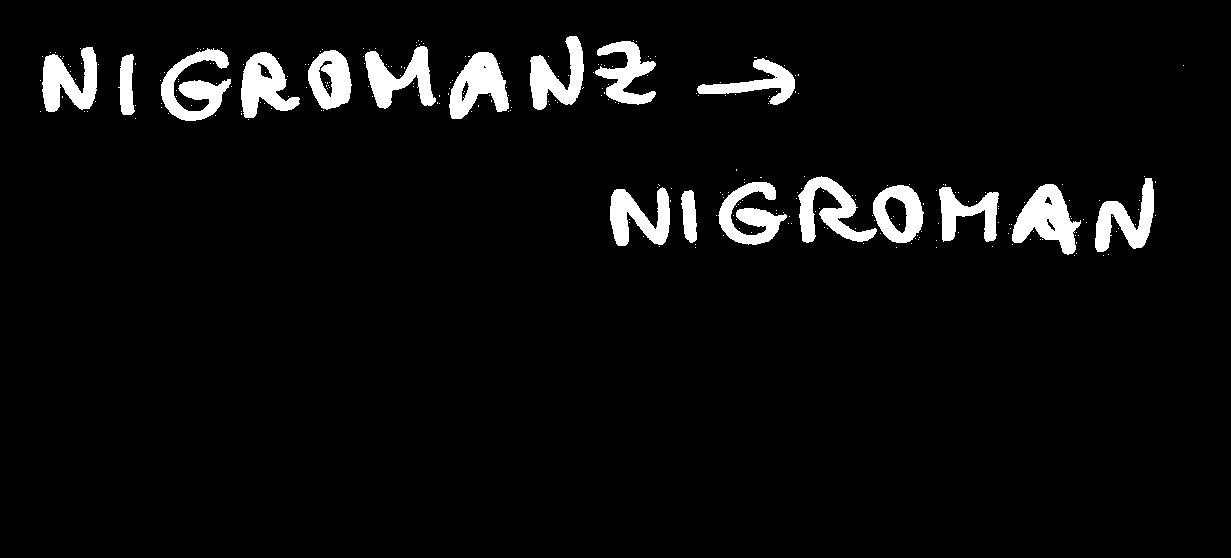 NIGROMANZ →
NIGROMAN